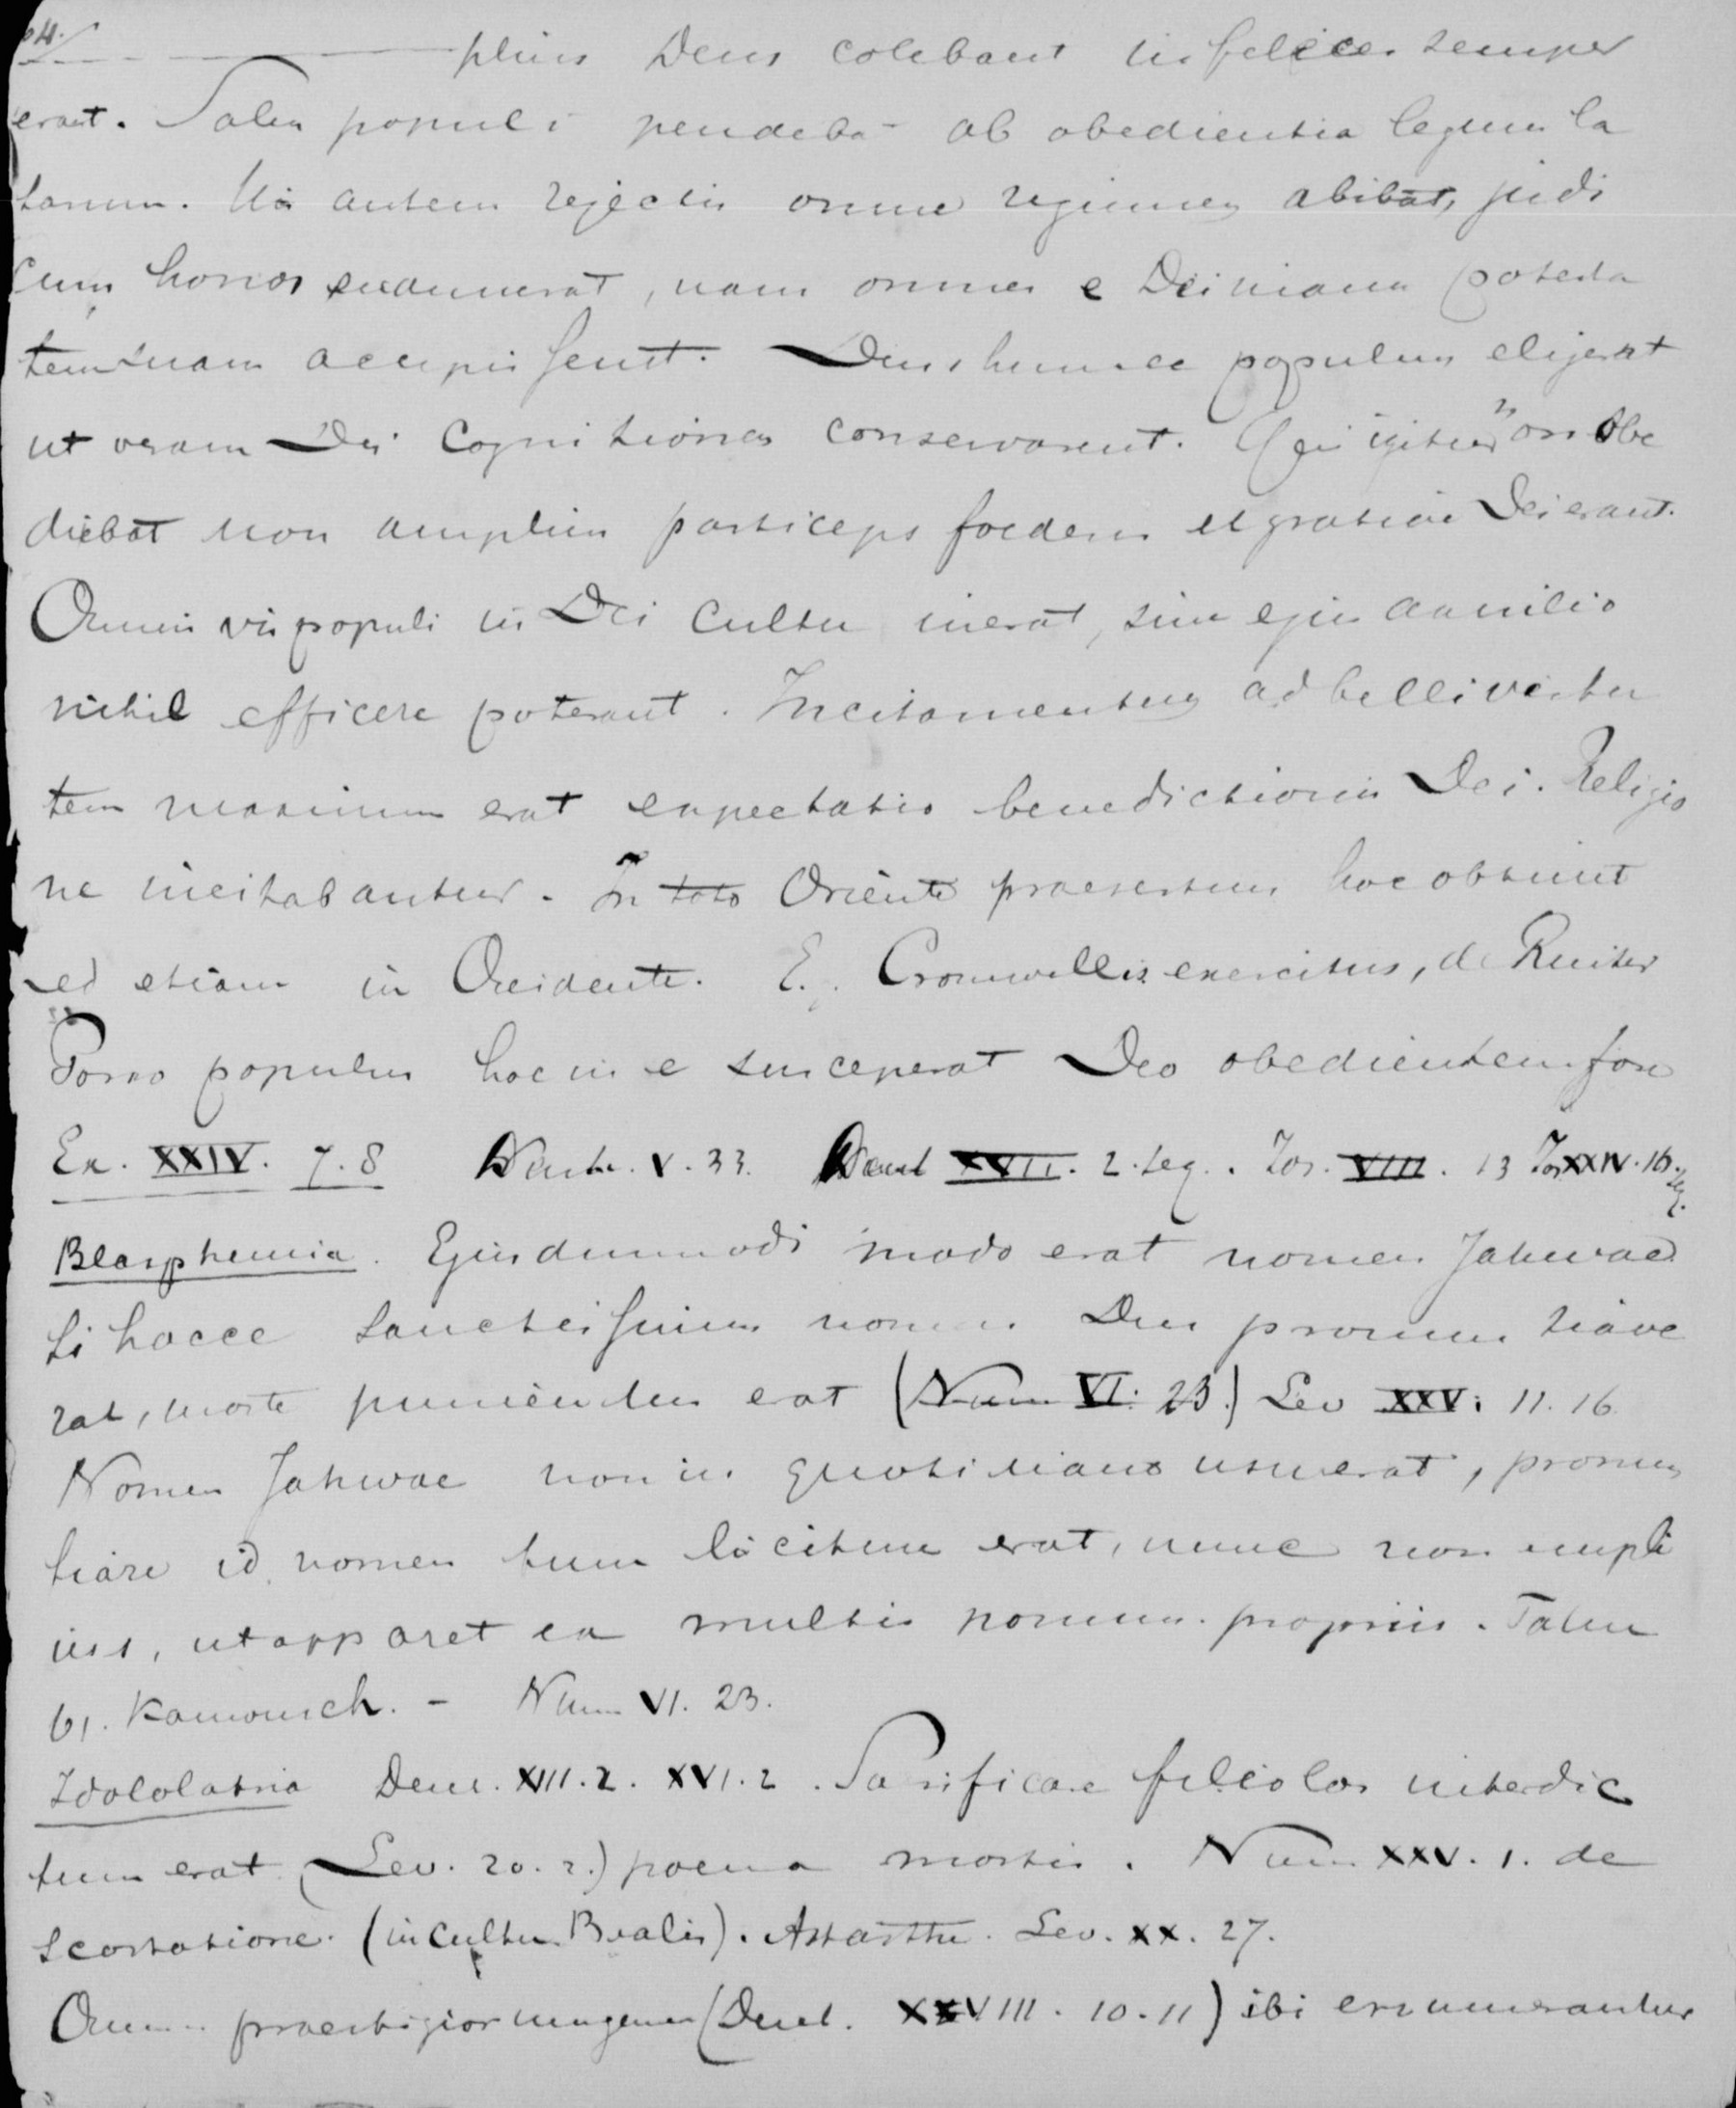 64.
plures Deus colebant infelices semper
erant. Salus populi pendebat ab obedientia legum la
tarum. Iis autem rejectis omne regimen abibat, judi
cum honos erat, nam omnes e Dei manu potesta
tem suam accepissent. Deus hunce populum eligerat
ut veram Dei cognitionem conservarent. Qui igitur non obe
diebat non amplius particeps foederis et gratiae Dei erant.
Omnis vis populi in Dei cultu inerat, sine ejus auxilio
nihil efficere poterant. Incitamentum ad belli virtu
tem maximum erat expectatio benedictionis Dei. Religio
ne incitabantur. In toto Oriente praesertim hoc obtinet
sed etiam in Occidente. E. Cromwellis exercitus, de Ruiter
Porro populus hoc in se susceperat Deo obedientem fore
Ex. XXIV. 7.8 Deut. V. 33. Deut XXVII. 2. seq. Jos. VIII. 13 Jos XXIV. 16. seq.
Blasphemia. Ejusdemmodi modo erat nomen Jahwae
si hocce sanctissimum nomen Dei pronuntiave
rat, morte puniendus erat (Num VI. 23.) Lev XXV: 11. 16
Nomen Jahwae non in quotidiano usu erat, pronun
tiare id nomen tum licitum erat, nunc non ampli
ius, ut apparet ex multis nomin. propriis. Talem
bj. Kamousch. - Num VI. 23.
Idololatria Deut. XIII. 2. XVI. 2. Sarificare filiolos interdic
tum erat (Lev. 20. 2.) poena mortis. Num XXV. 1. de
scortatione. (in cultu Bealis). Astarthe. Lev. XX. 27.
Omne praestigiorum genus (Deut. XXVIII. 10. 11) ibi enumerantur